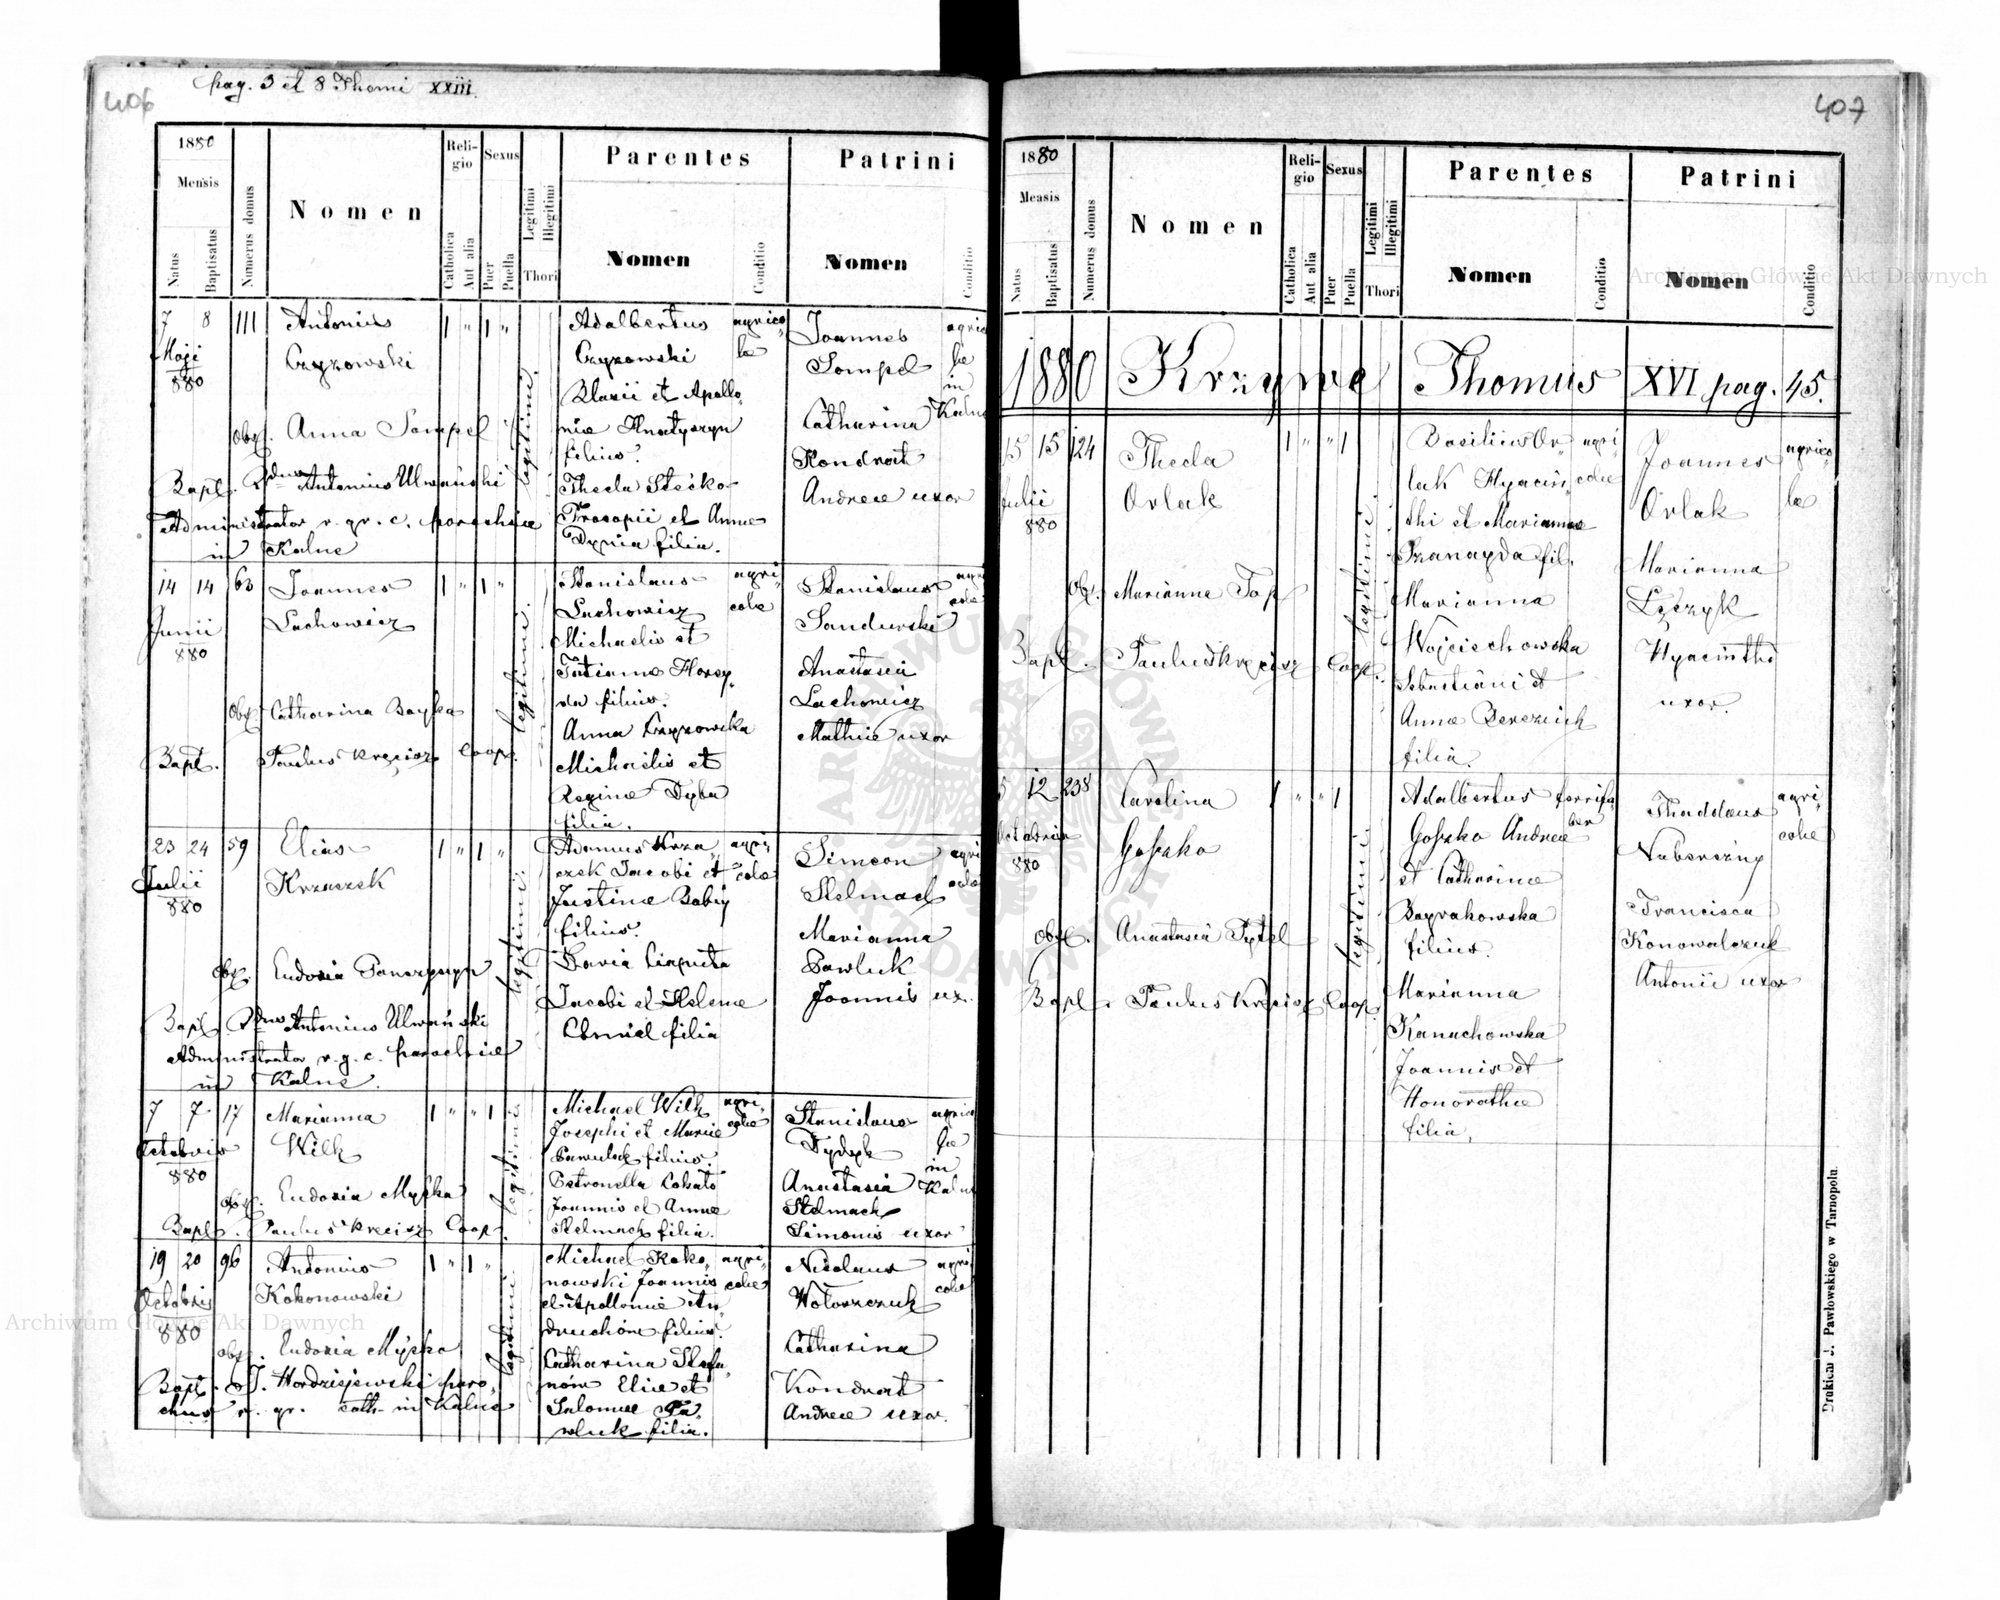 406
pag. 3 et 8 Thomi XXIII.
1880
Mensis
Natus
Baptisatus
Numerus domus
Nomen
Religio
Catholica
Aut alia
Sexus
Puer
Puella
Legitimi
Illegitimi
Thori
Parentes
Nomen
Conditio
Patrini
Nomen
Conditio
7 8 111
Maji
880
Antonius
Czyzowski
1 " 1 "
legitimi
Adalbertus
Czyzowski
Blasii et Apollo-
niae Hnatyszyn
filius.
Thecla Stećko
Procopii et Annae
Dynia filia.
agrico
lae
Joannes
Sompel
Catharina
Kondrat
Andreae uxor
in
Kalne
obst. Anna Sompel
Bapt. Rdnus Antonius Ulwański
Administrator r. gr. c. parochiae
in Kalne
14 14 63
Junii
880
Joannes
Lachowicz
1 " 1 "
legitimi.
Stanislaus
Lachowicz
Michaelis et
Tatianae Horey-
da filius.
Anna Czyzowska
Michaelis et
Reginae Dyba
filia.
agri-
colae
Stanislaus
Sandurski
Anastasia
Lachowicz
Mathiae uxor
obst. Catharina Bayka
Bapt. Paulus Kręcisz Coop.
23 24 59
Julii
880
Elias
Krzaczek
1 " 1 "
legitimi.
Adamus Krza-
czek Jacobi et
Justinae Babij
filius.
Daria Ciaputa
Jacobi et Helenae
Chmiel filia
agri-
colae
Simeon
Stelmach
Marianna
Pawluk
Joannis ux.
obst. Eudoxia Panczyszyn
Bapt. Rdnus Antonius Ulwański
Administrator r. g. c. parochiae
in Kalne.
7 7 17
Octobris
880
Marianna
Wilk
1 " " 1
legitimi
Michael Wilk
Josephi et Mariae
Pawluk filius.
Petronella Cobato
Joannis et Annae
Stelmach filia.
agri-
colae
Stanislaus
Dydyk
Anastasia
Stelmach
Simonis uxor
agrico
lae
in
Kalne
obst. Eudoxia Myśka
Bapt. Paulus Kręcisz Coop.
19 20 96
Octobris
880
Antonius
Kokonowski
1 " 1 "
legitimi
Michael Koko-
nowski Joannis
et Apolloniae An-
druchów filius.
Catharina Stefa-
nów Eliae et
Salomeae Pa-
wluk filia.
agri-
colae
Nicolaus
Wotoszczuk
Catharina
Kondrat
Andreae uxor.
obst. Eudoxia Myśka
Bapt. J. Hordzijewski paro-
chus r. gr. cath. in Kalne
407
1880
Mensis
Natus
Baptisatus
Numerus domus
Nomen
Religio
Catholica
Aut alia
Sexus
Puer
Puella
Legitimi
Illegitimi
Thori
Parentes
Nomen
Conditio
Patrini
Nomen
Conditio
1880 Krzywe Thomus XVI pag. 45.
15 15 124
Julii
880
Thecla
Orlak
1 " " 1
legitimi.
Basilius Or-
lak Hyacin-
thi et Mariannae
Szanayda fil.
Marianna
Wojciechowska
Sebastiani et
Annae Bereziuk
filia.
agri-
colae
Joannes
Orlak
Marianna
Łęczyk
Hyacinthi
uxor.
agrico-
lae
obst. Marianna Tap
Bapt. Paulus Kręcisz Coop.
5 12 238
Octobris
880
Carolina
Goszko
1 " " 1
legitimi.
Adalbertus
Goszko Andreae
et Catharinae
Bayrakowska
filius.
Marianna
Kanachowska
Joannis et
Honorathae
filia.
ferrifa
ber
Thaddaeus
Nabereżny
Francisca
Konowalczuk
Antonii uxor
agri-
colae
obst. Anastasia Dydel
Bapt. Paulus Kręcisz Coop.
Drukiem J. Pawłowskiego w Tarnopolu.
Archiwum Główne Akt Dawnych
Archiwum Główne Akt Dawnych
ARCHIWUM GŁÓWNE AKT DAWNYCH